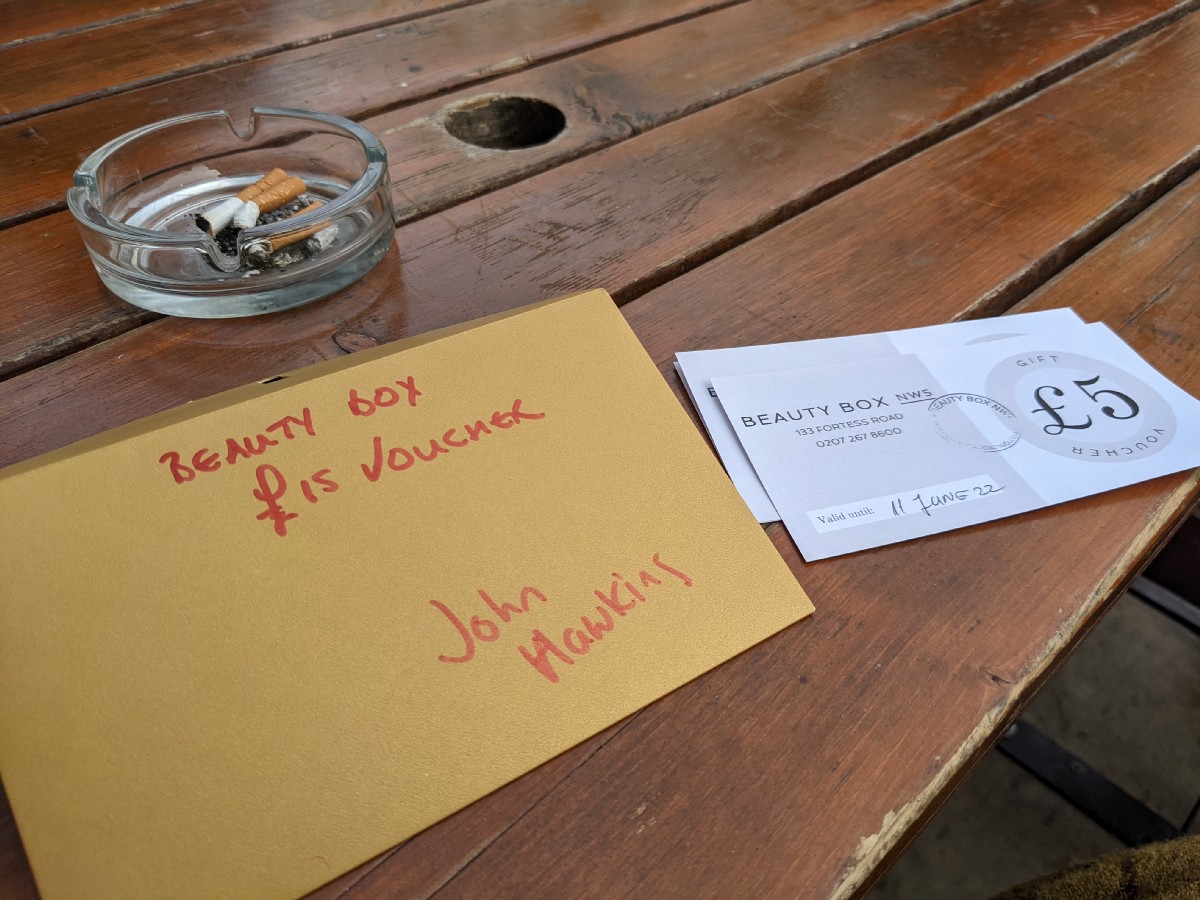 BEAUTY BOX
£15 VOUCHER
John
Hawkins
BEAUTY BOX NW5
133 FORTESS ROAD
0207 267 8600
BEAUTY BOX NW5
Valid until: 11 JUNE 22
GIFT
£5
VOUCHER